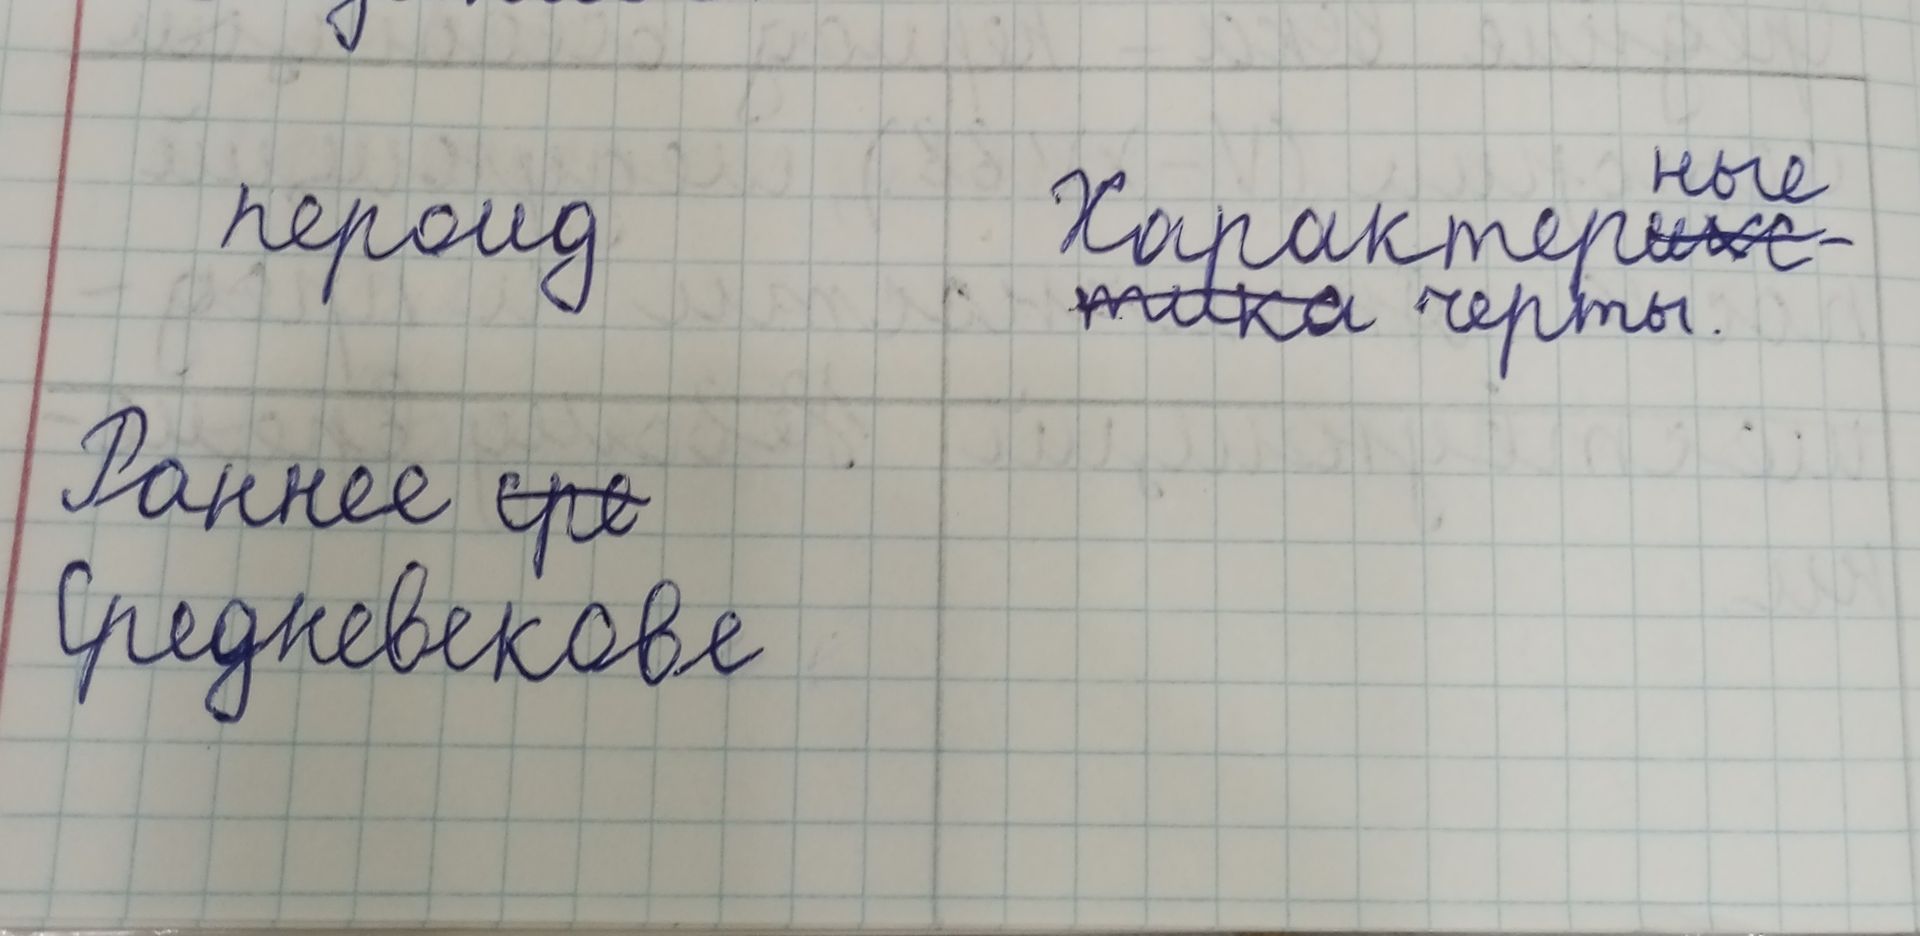 пероид
Характерные
черты.
Раннее
Средневекове